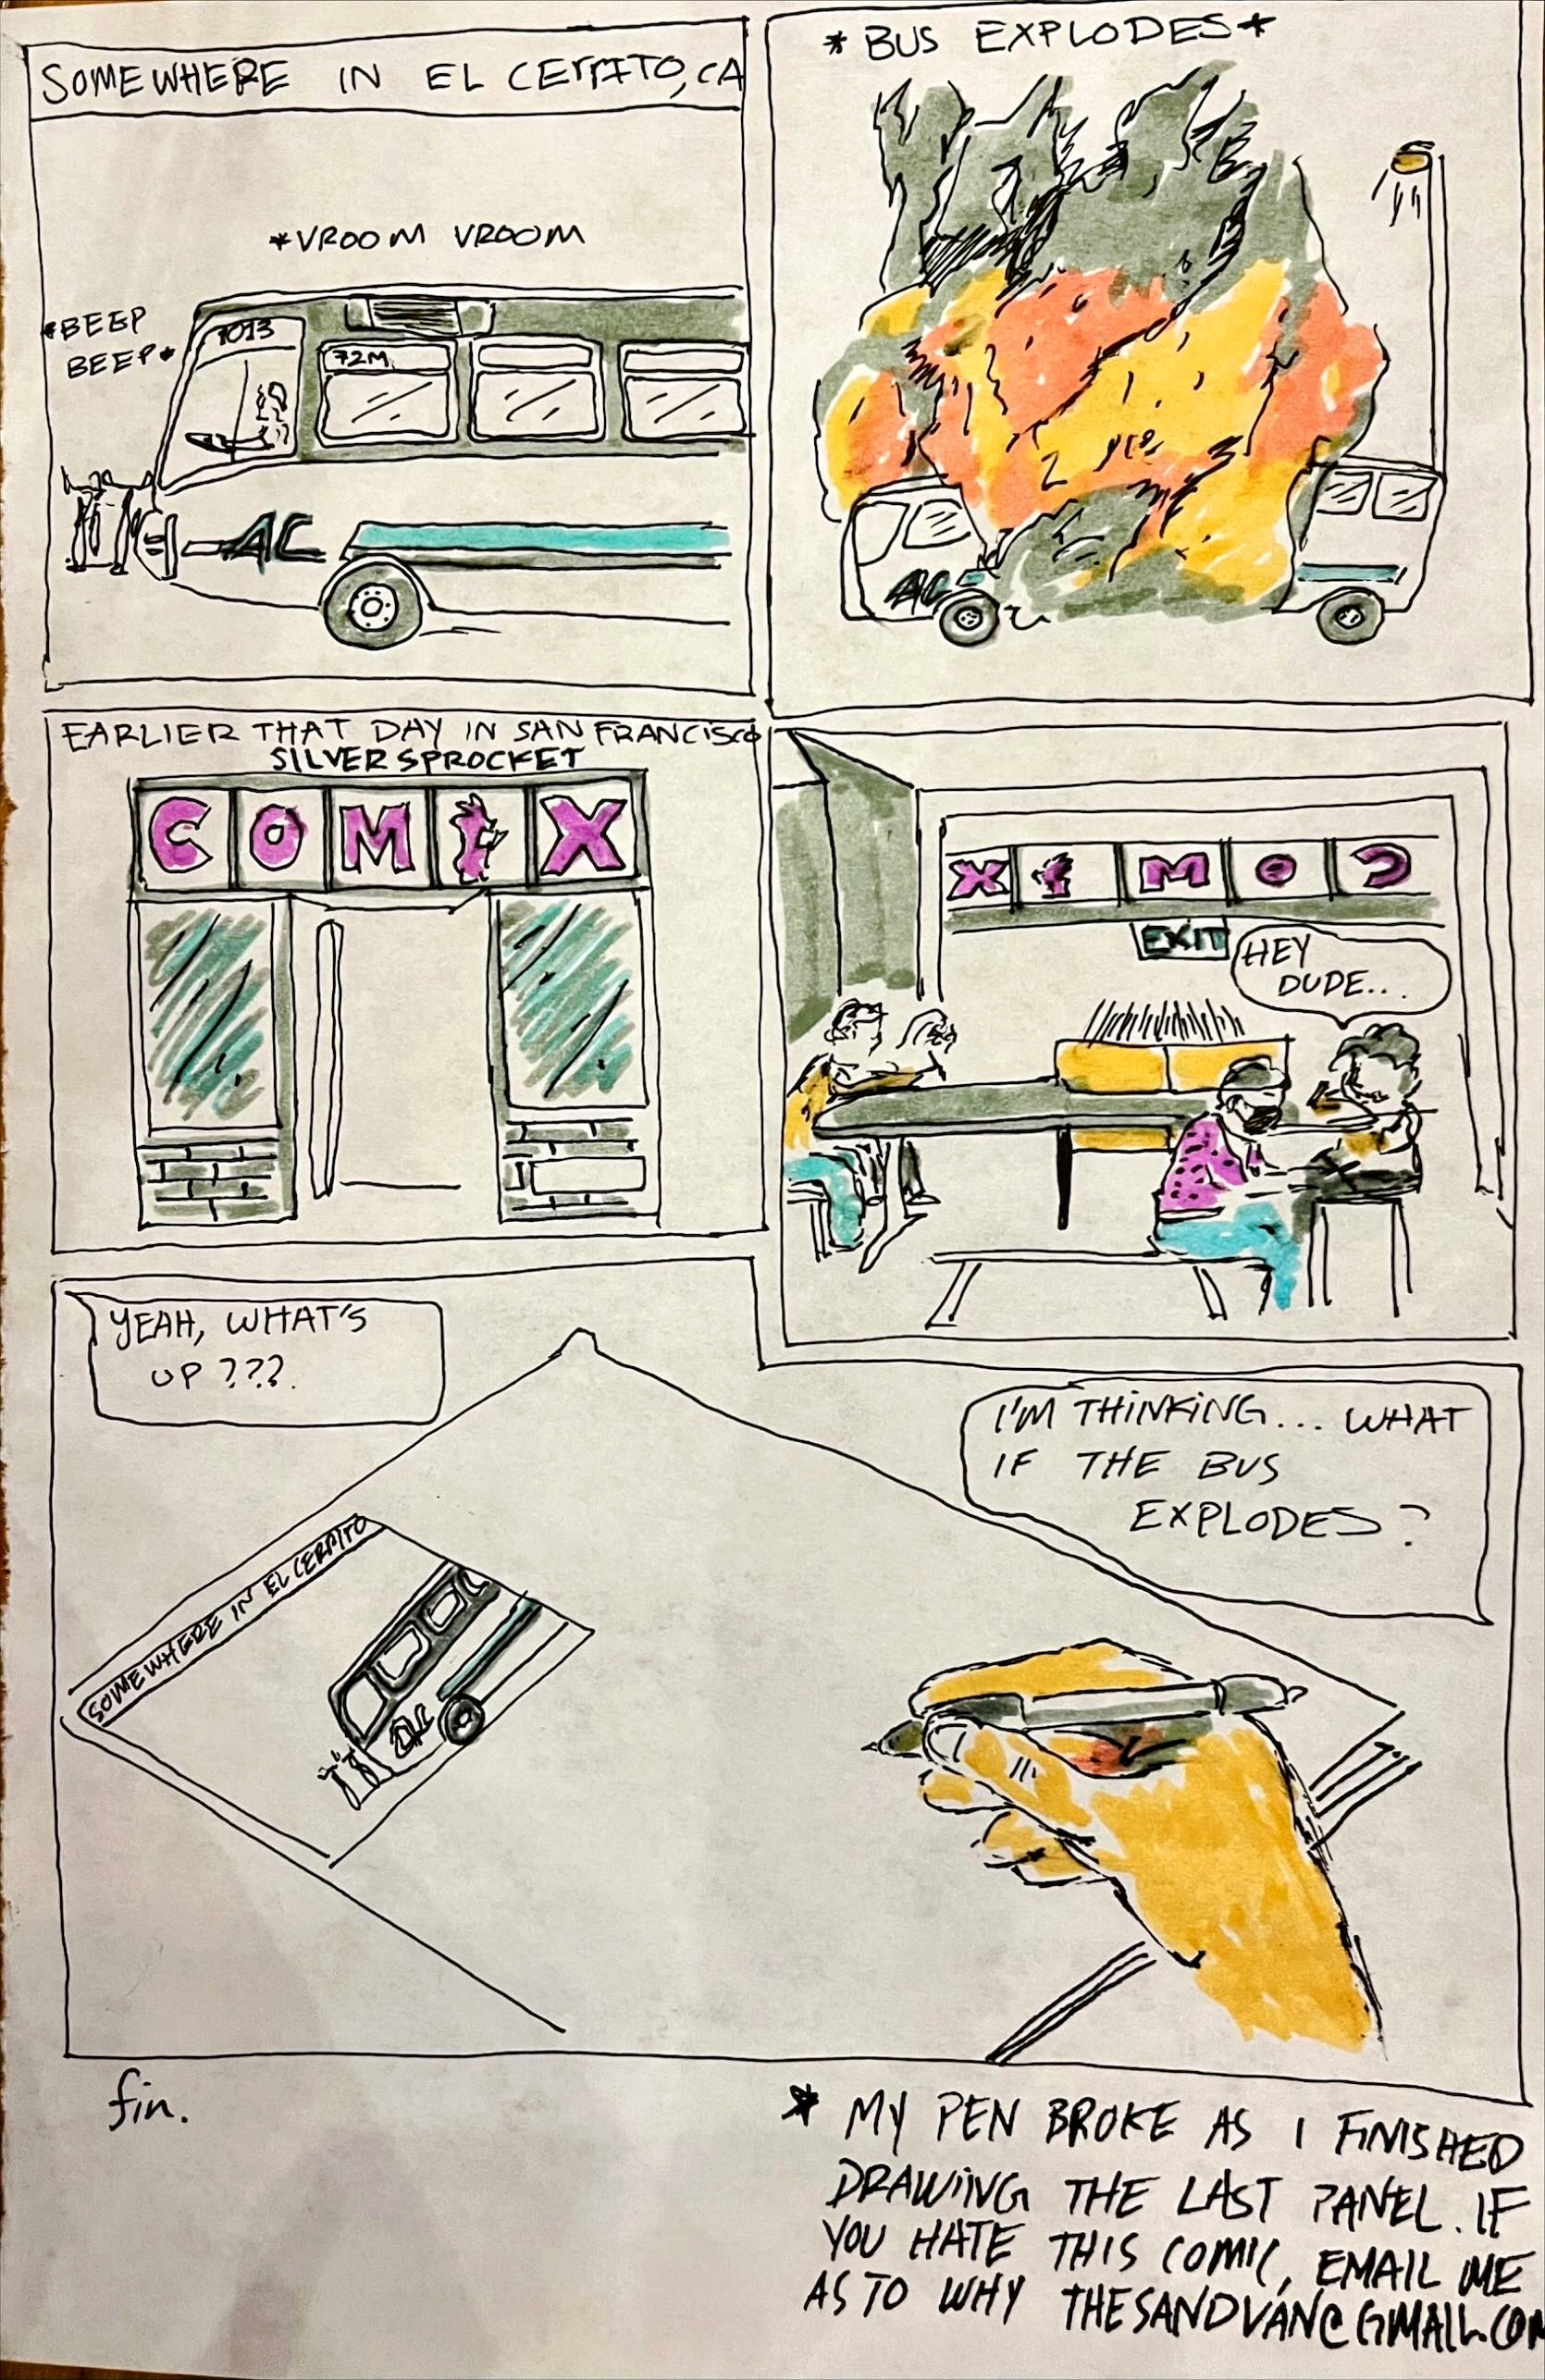 SOMEWHERE IN EL CERRITO, CA
*VROOM VROOM
*BEEP
BEEP*
1013
72M
AC
*BUS EXPLODES*
AC
EARLIER THAT DAY IN SAN FRANCISCO
SILVER SPROCKET
COMIX
XIMOC
EXIT
HEY
DUDE...
YEAH, WHAT'S
UP ???.
I'M THINKING... WHAT
IF THE BUS
EXPLODES?
SOMEWHERE IN EL CERRITO
AC
fin.
* MY PEN BROKE AS I FINISHED
DRAWING THE LAST PANEL. IF
YOU HATE THIS COMIC, EMAIL ME
AS TO WHY THESANDVAN@GMAIL.COM